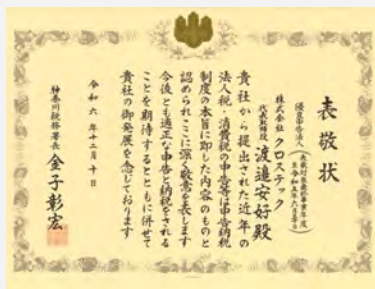 表敬状
優良申告法人
(表敬対象最終事業年度
自令和五年六月期)
株式会社 クロステック
代表取締役 渡邉安好殿
貴社から提出された近年の
法人税、消費税の申告等は申告納税
制度の本旨に即した内容のものと
認められここに深く敬意を表します
今後とも適正な申告と納税をされる
ことを期待するとともに併せて
貴社の御発展を念じております
令和六年十二月十日
神奈川税務署長 金子彰宏